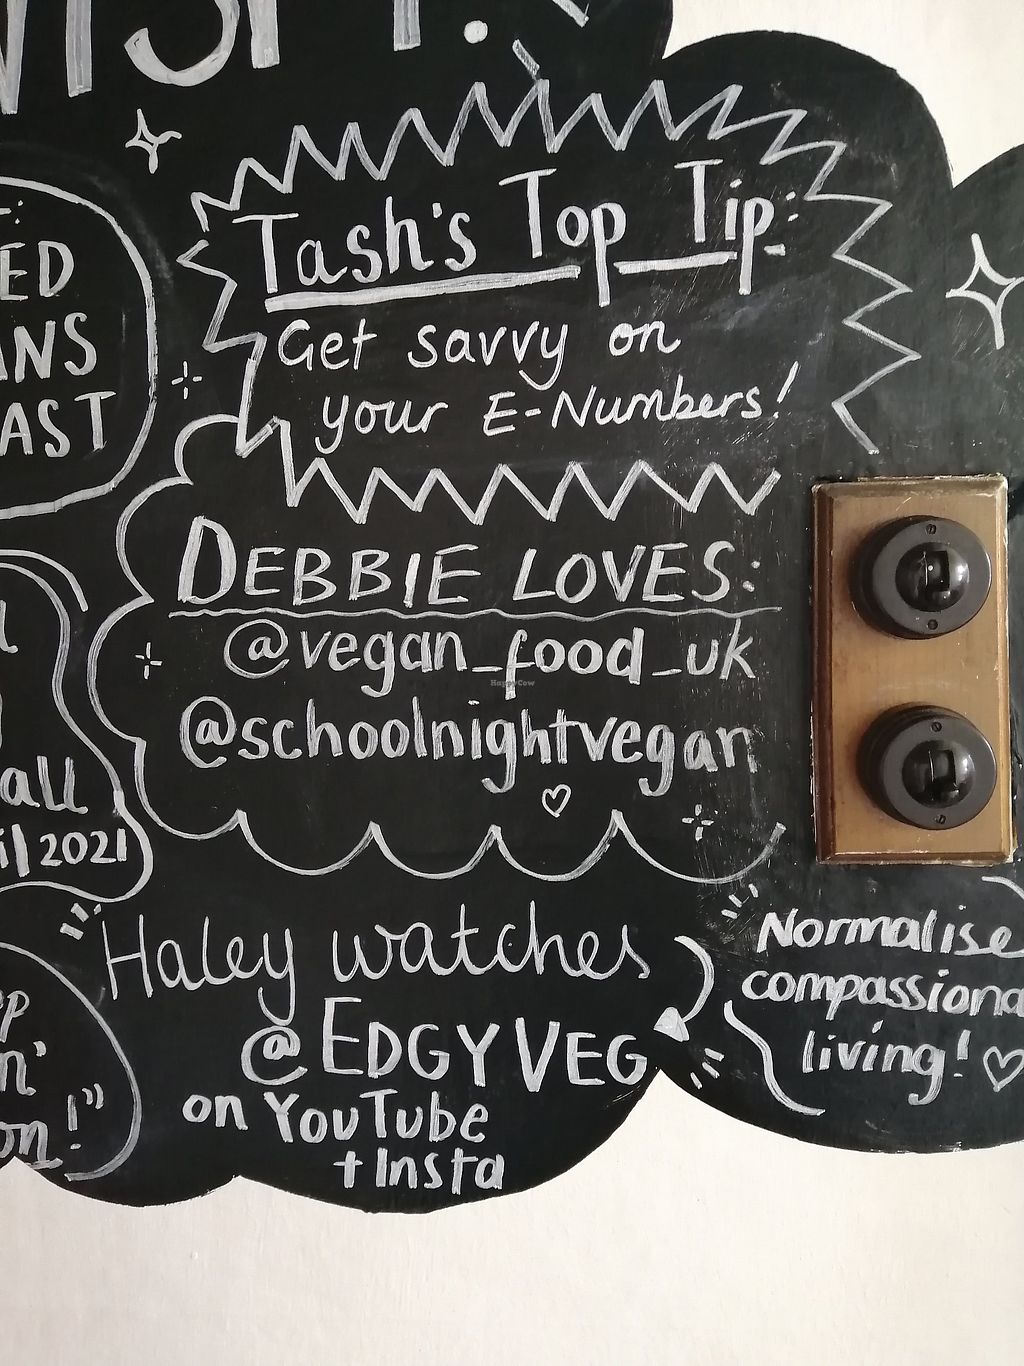 Tash's Top Tip:
Get savvy on
your E-Numbers!
ED
ANS
AST
DEBBIE LOVES:
@vegan_food_uk
@schoolnightvegan
HappyCow
all
il 2021
Haley watches
@EDGYVEG
on YouTube
+Insta
Normalise
compassiona
living!
op
n'
on!"